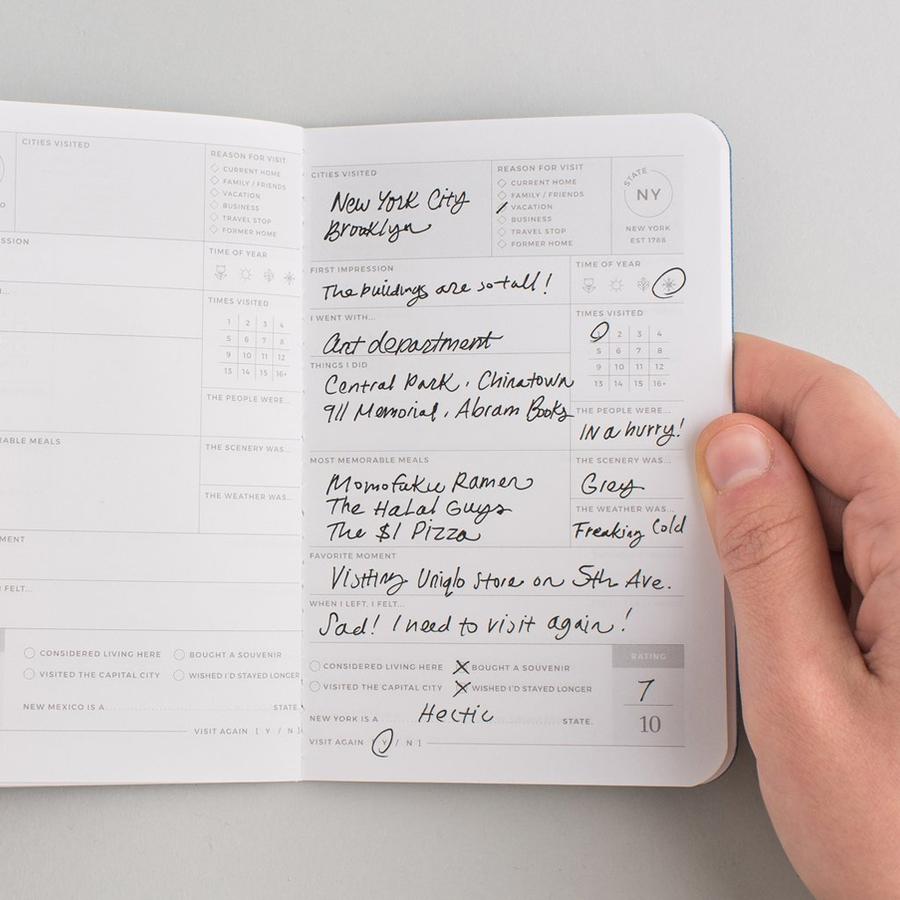 CITIES VISITED
REASON FOR VISIT
CURRENT HOME
FAMILY / FRIENDS
VACATION
BUSINESS
TRAVEL STOP
FORMER HOME
TIME OF YEAR
TIMES VISITED
1 2 3 4
5 6 7 8
9 10 11 12
13 14 15 16+
THE PEOPLE WERE...
MEALS
THE SCENERY WAS...
THE WEATHER WAS...
FELT...
CONSIDERED LIVING HERE
BOUGHT A SOUVENIR
VISITED THE CAPITAL CITY
WISHED I'D STAYED LONGER
NEW MEXICO IS A
STATE.
VISIT AGAIN [ Y / N ]
CITIES VISITED
New York City
Brooklyn
REASON FOR VISIT
CURRENT HOME
FAMILY / FRIENDS
VACATION
BUSINESS
TRAVEL STOP
FORMER HOME
STATE
NY
NEW YORK
EST 1788
FIRST IMPRESSION
The buildings are so tall!
TIME OF YEAR
I WENT WITH...
Art department
TIMES VISITED
1 2 3 4
5 6 7 8
9 10 11 12
13 14 15 16+
THINGS I DID
Central Park, Chinatown
911 Memorial, Abram Books
THE PEOPLE WERE...
In a hurry!
MOST MEMORABLE MEALS
Momofuku Ramen
The Halal Guys
The $1 Pizza
THE SCENERY WAS...
Grey
THE WEATHER WAS...
Freaking Cold
FAVORITE MOMENT
Visiting Uniqlo store on 5th Ave.
WHEN I LEFT, I FELT...
Sad! I need to visit again!
CONSIDERED LIVING HERE
BOUGHT A SOUVENIR
VISITED THE CAPITAL CITY
WISHED I'D STAYED LONGER
NEW YORK IS A Hectic STATE.
VISIT AGAIN [ Y / N ]
RATING
7
10